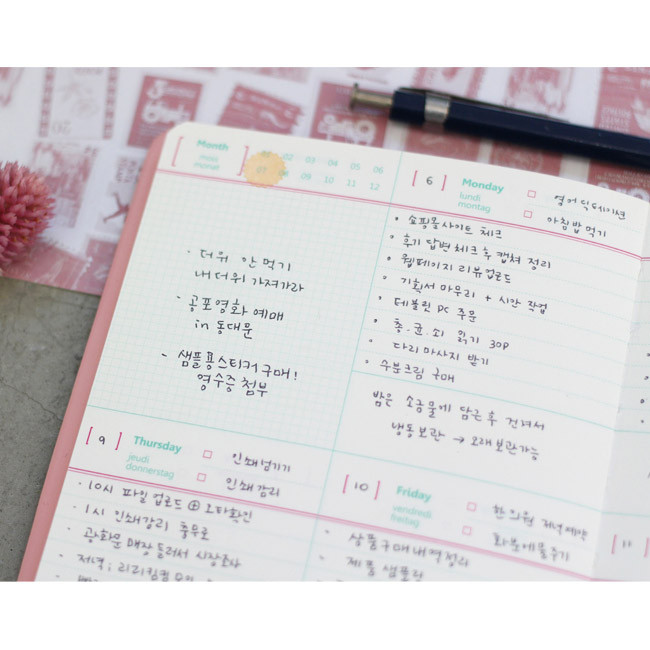 Month
mois
monat
02 03 04 05 06
07 09 10 11 12
· 더위 안 먹기
내 더위 가져가라
· 공포영화 예매
in 동대문
- 샘플용스티커구매!
영수증 첨부
[ 6 ] Monday
lundi
montag
영어 딕테이션
아침밥 먹기
• 쇼핑몰사이트 체크
• 후기 답변 체크 후 캡쳐 정리
• 웹페이지 리뷰업로드
• 기획서 마무리 + 시안 작업
• 테블릿 PC 주문
• 총.균.쇠 읽기 30P
• 다리 마사지 받기
• 수분크림 구매
밤은 소금물에 담근 후 건져서
냉동보관 → 오래보관가능
[ 9 ] Thursday
jeudi
donnerstag
인쇄넘기기
인쇄감리
· 10시 파일 업로드 ⊕ 오타확인
· 1시 인쇄감리 충무로
· 광화문 매장 들러서 시장조사
· 저녁;
[ 10 ] Friday
vendredi
freitag
한의원 저녁예약
화분에물주기
· 상품구매내역정리
· 제품 샘플링
[ 11